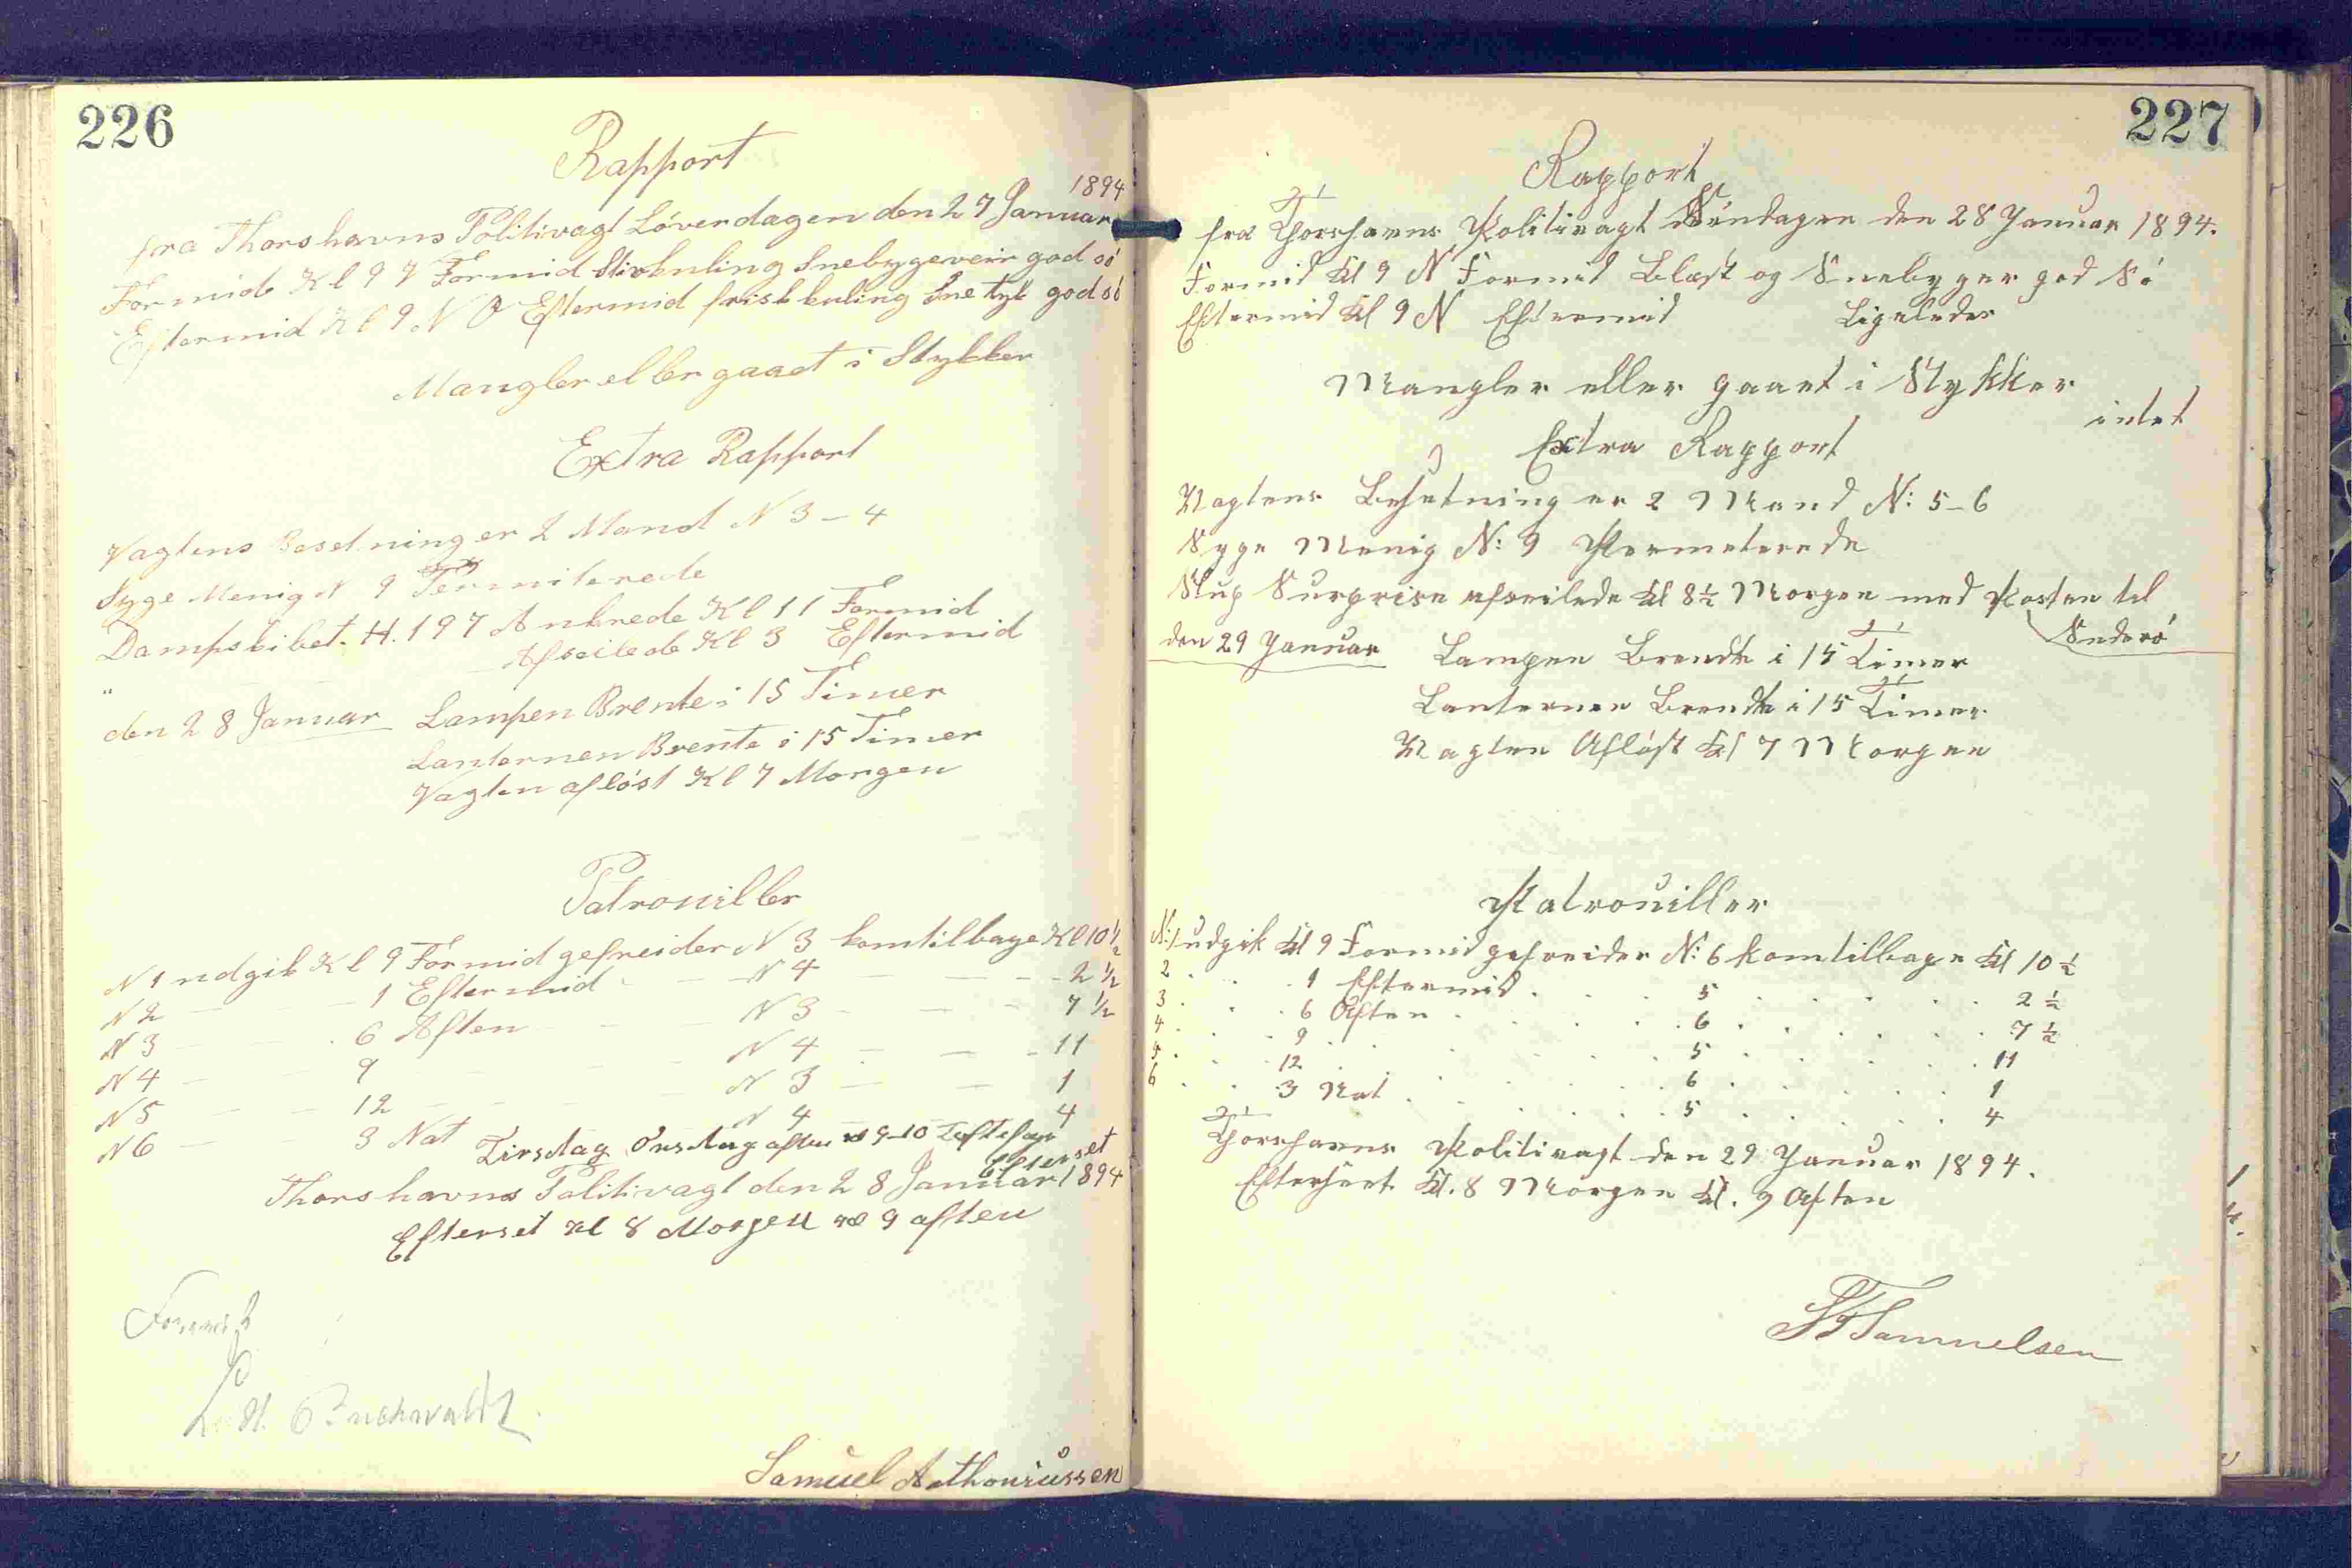 226
Rapport
1894
fra Thorshavns Politivagt Löverdagen den 27 Januar
Formid Kl 9 Formid Stivkuling Snebygeveir god sö
Eftermid Kl 9 N O Eftermid frisk kuling Sne tyk god sö
Mangler eller gaaet i Stykker
Extra Rapport
Vagtens Besetning er 2 Mand N 3 - 4
Syge Menig N 9 Permiterede
Dampskibet H. 197 Ankrede Kl 11 Formid
" Afseilede Kl 3 Eftermid
den 28 Januar Lampen Brente i 15 Timer
Lanternen Brente i 15 Timer
Vagten aflöst Kl 7 Morgen
Patrouiller
N 1 udgik Kl 9 Formid gefreider N 3 kom tilbage Kl 10 ½
N 2 — — 1 Eftermid — — N 4 — — 2 ½
N 3 — — 6 Aften — — N 3 — — 7 ½
N 4 — — 9 — — N 4 — — 11
N 5 — — 12 — — N 3 — — 1
N 6 — — 3 Nat N 4 4
Tirsdag Onsdag aften kl 9-10
Efterset
Thorshavns Politivagt den 28 Januar 1894
Efterset kl 8 Morgen kl 9 aften
Buchwaldt
Samuel Anthoniussen
227
Rapport
fra Thorshavns Politivagt Söndagen den 28 Januar 1894.
Formid Kl 9 N Formid Blæst og Snebyger god Sö
Eftermid Kl 9 N Eftermid Ligeledes
Mangler eller gaaet i Stykker
intet
Extra Rapport
Vagtens Besetning er 2 Mand N: 5-6
Syge Menig N: 9 Permeterede
Slup Surprise afseilede Kl 8½ Morgen med Posten til
Suderö
den 29 Januar Lampen Brendte i 15 Timer
Lanternen Brendte i 15 Timer
Vagten Aflöst Kl 7 Morgen
Patrouiller
N: 1 udgik Kl 9 Formid gefreider N: 6 kom tilbage Kl 10 ½
2 . . . 1 Eftermid . . . 5 . . . 2 ½
3 . . . 6 Aften . . . 6 . . . 7 ½
4 . . . 9 . . . 5 . . . 11
5 . . . 12 . . . 6 . . . 1
6 . . . 3 Nat . . . 5 . . . 4
Thorshavns Politivagt den 29 Januar 1894.
Efterseet Kl. 8 Morgen Kl. 9 Aften
Samuelsen